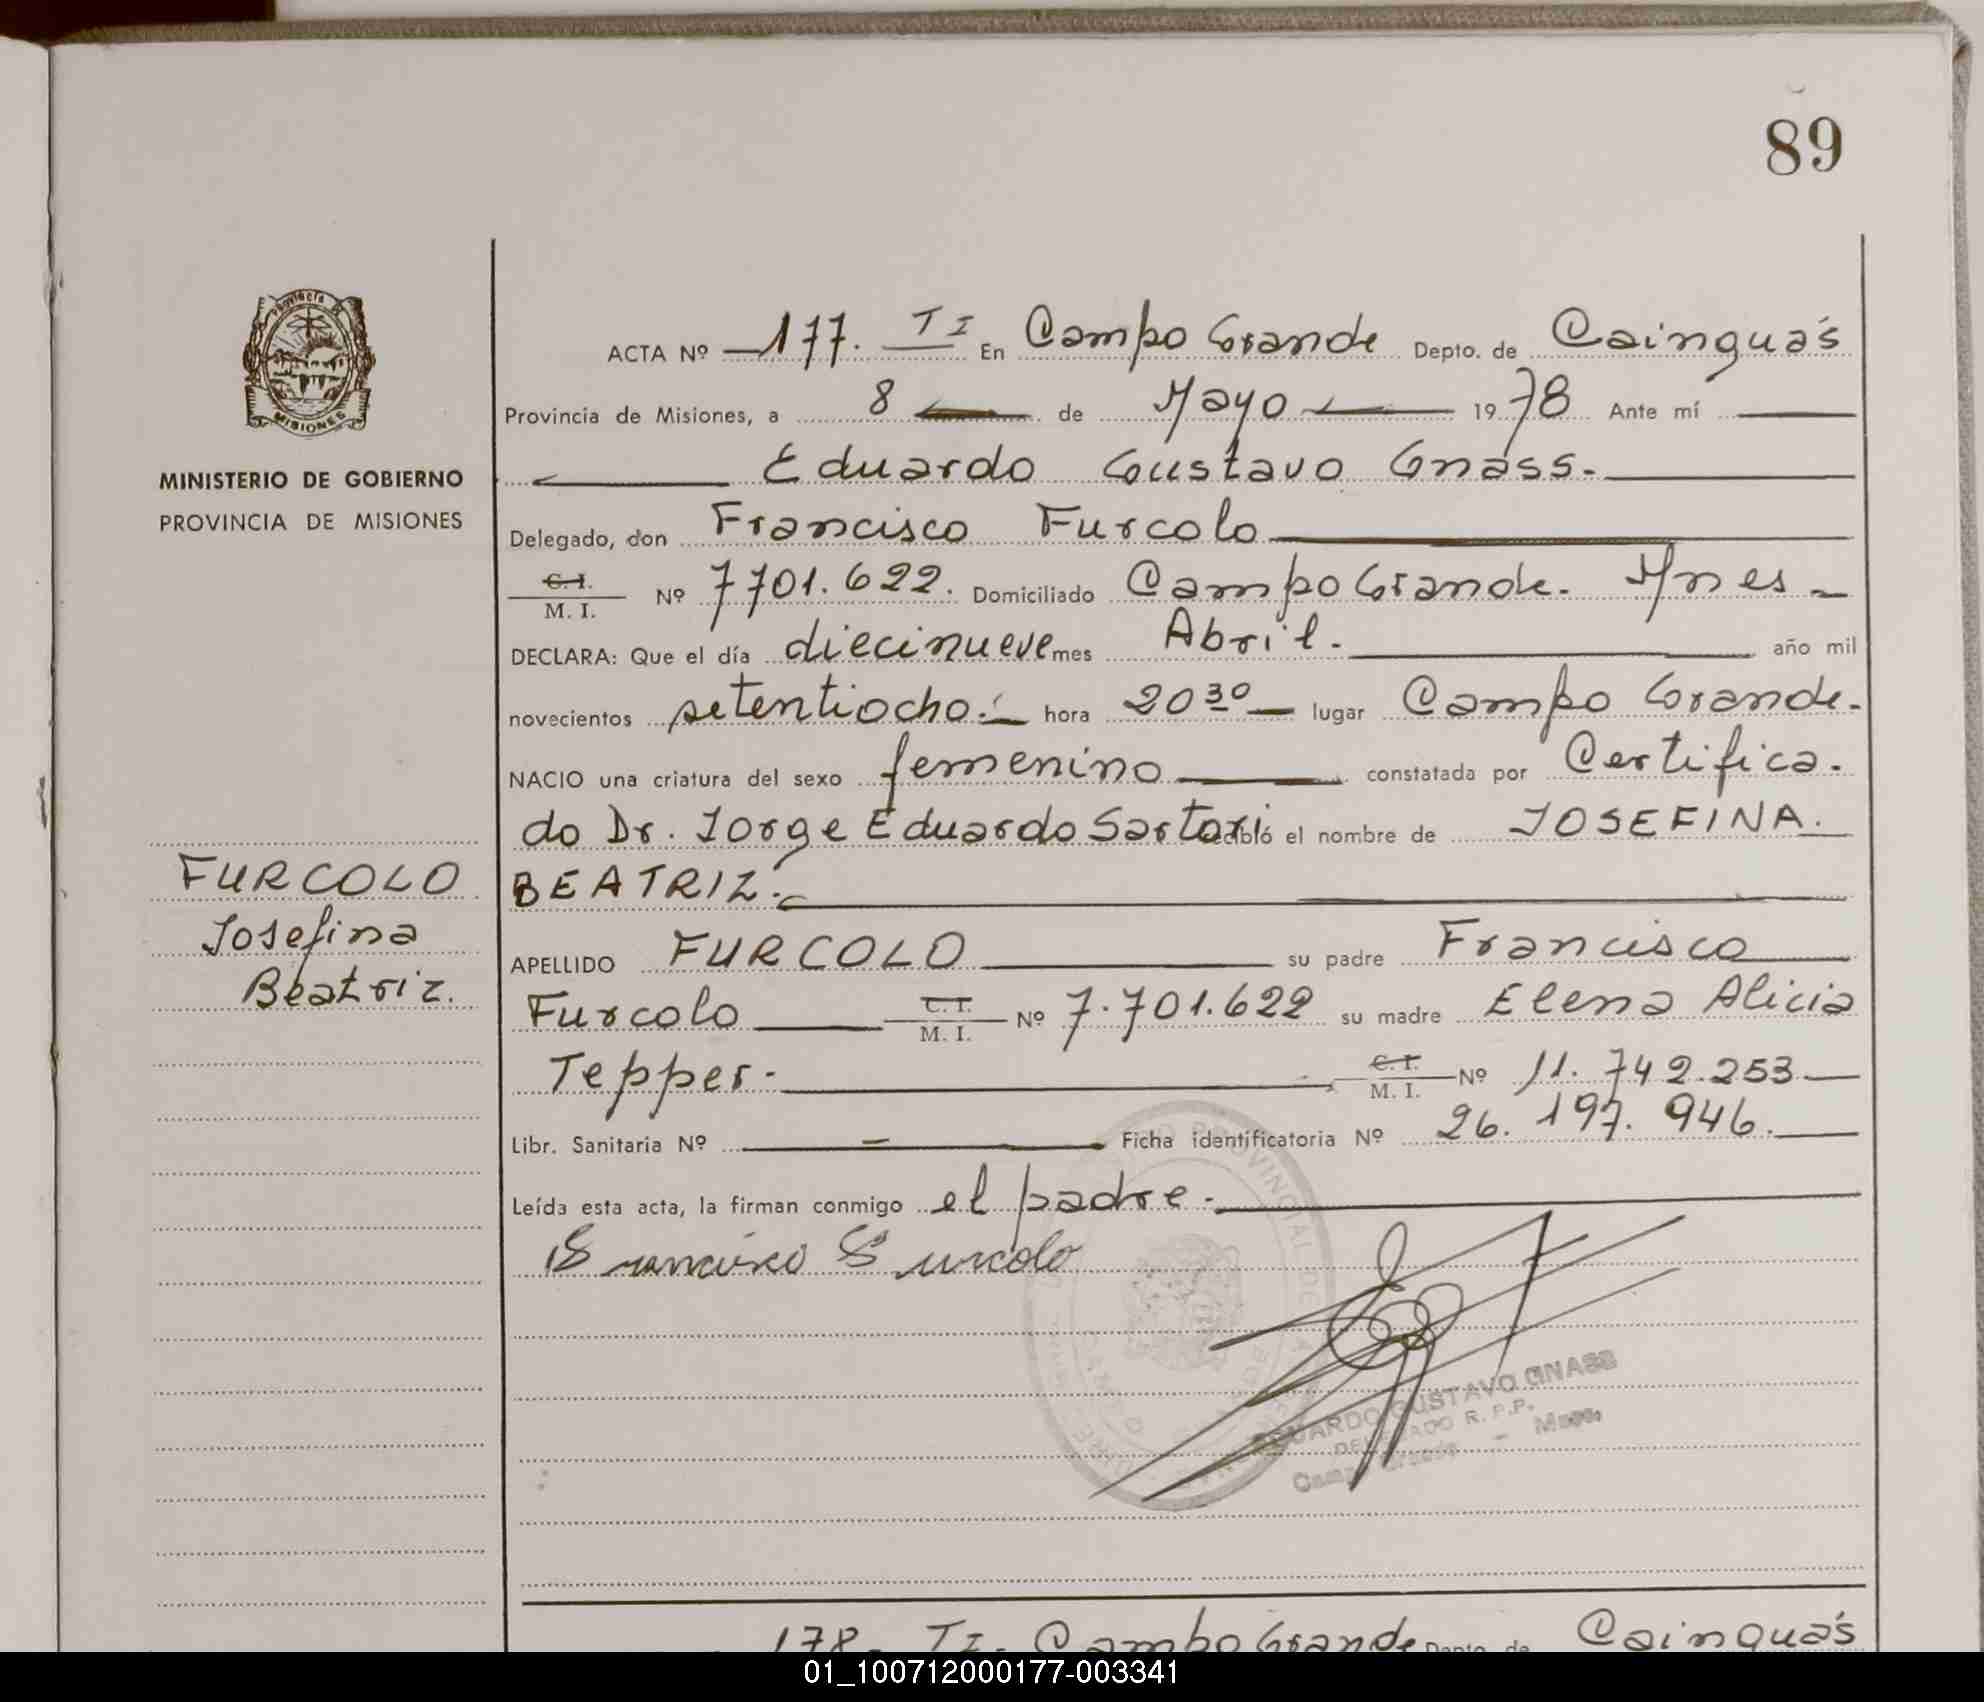 89
PROVINCIA DE
MISIONES
MINISTERIO DE GOBIERNO
PROVINCIA DE MISIONES
FURCOLO
Josefina
Beatriz.
ACTA Nº 177. TI En Campo Grande Depto. de Cainguás
Provincia de Misiones, a 8 de Mayo 1978 Ante mí
Eduardo Gustavo Gnass.
Delegado, don Francisco Furcolo
C. I. M. I. Nº 7701.622. Domiciliado Campo Grande. Mnes
DECLARA: Que el día diecinueve mes Abril. año mil
novecientos setentiocho. hora 20 30 lugar Campo Grande.
NACIO una criatura del sexo femenino constatada por Certifica.
do Dr. Jorge Eduardo Sartori recibió el nombre de JOSEFINA.
BEATRIZ.
APELLIDO FURCOLO su padre Francisco
Furcolo C. I. M. I. Nº 7.701.622 su madre Elena Alicia
Tepper. C. I. M. I. Nº 11.742.253
Libr. Sanitaria Nº — Ficha identificatoria Nº 26.197.946.
Leída esta acta, la firman conmigo el padre.
Francisco Furcolo
EDUARDO GUSTAVO GNASS
DELEGADO R. P. P.
Campo Grande -
178. TI. Campo Grande Depto. de Cainguás
01_100712000177-003341